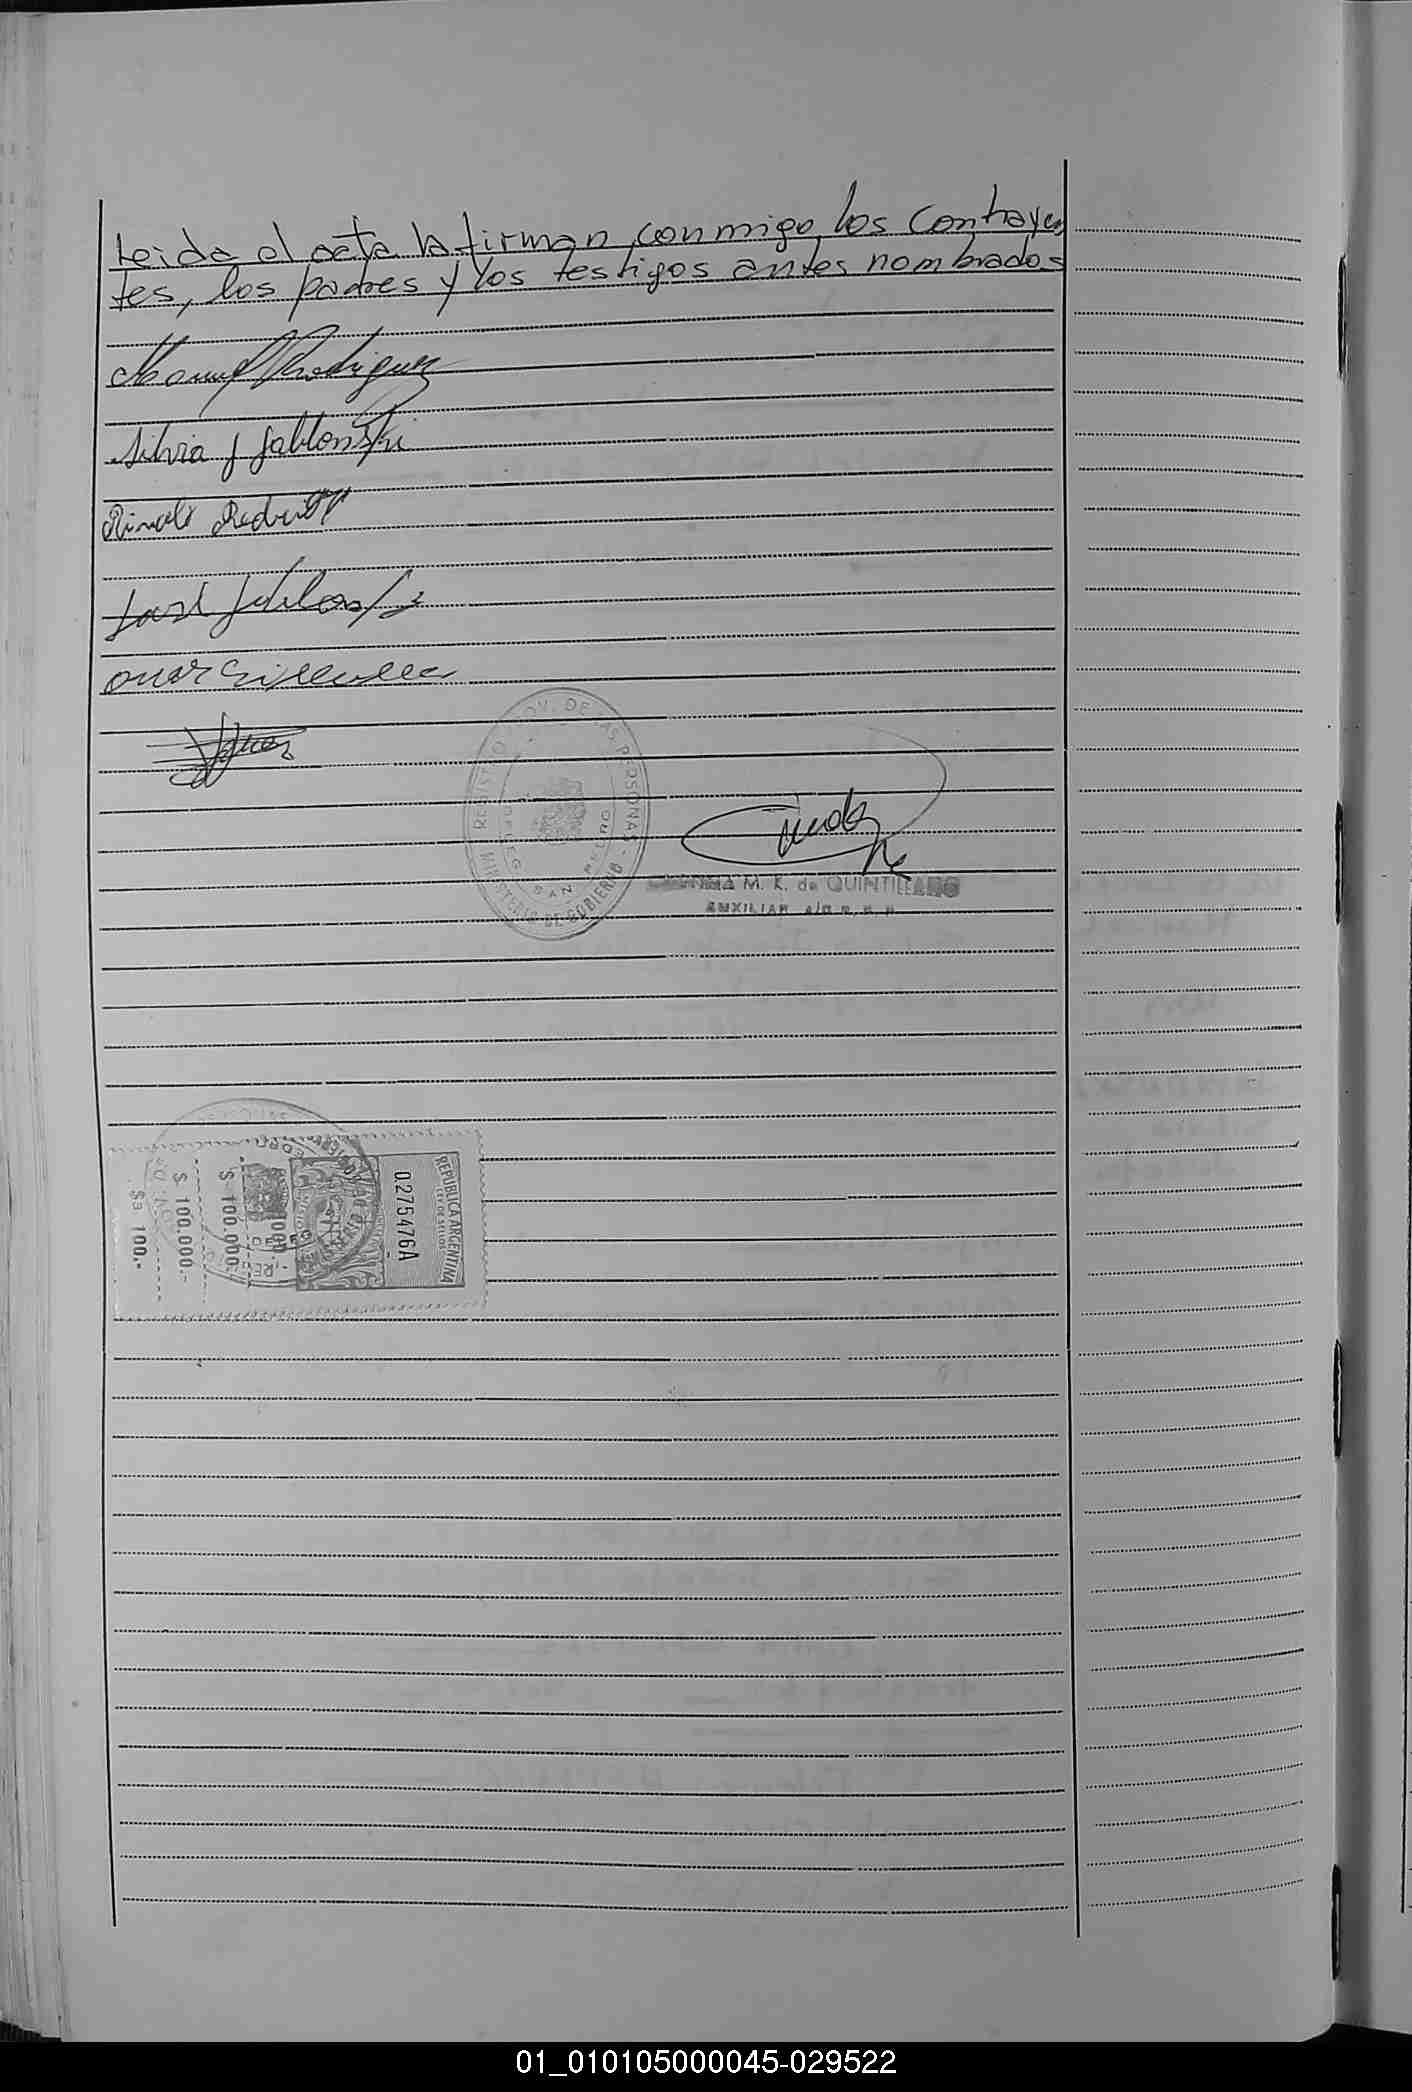 Leida el acta la firman conmigo los contrayen
tes, los padres y los testigos antes nombrados
Manuel Rodriguez
Silvia J Jablonski
José Jablonski
Omar
REGISTRO PROV. DE LAS PERSONAS
MINISTERIO DE GOBIERNO
SAN PEDRO
M. K. de QUINTILLANO
AUXILIAR
REPUBLICA ARGENTINA
LEY DE SELLOS
0275476A
$ 100.000
$ 100.000.-
$a 100.-
01_010105000045-029522